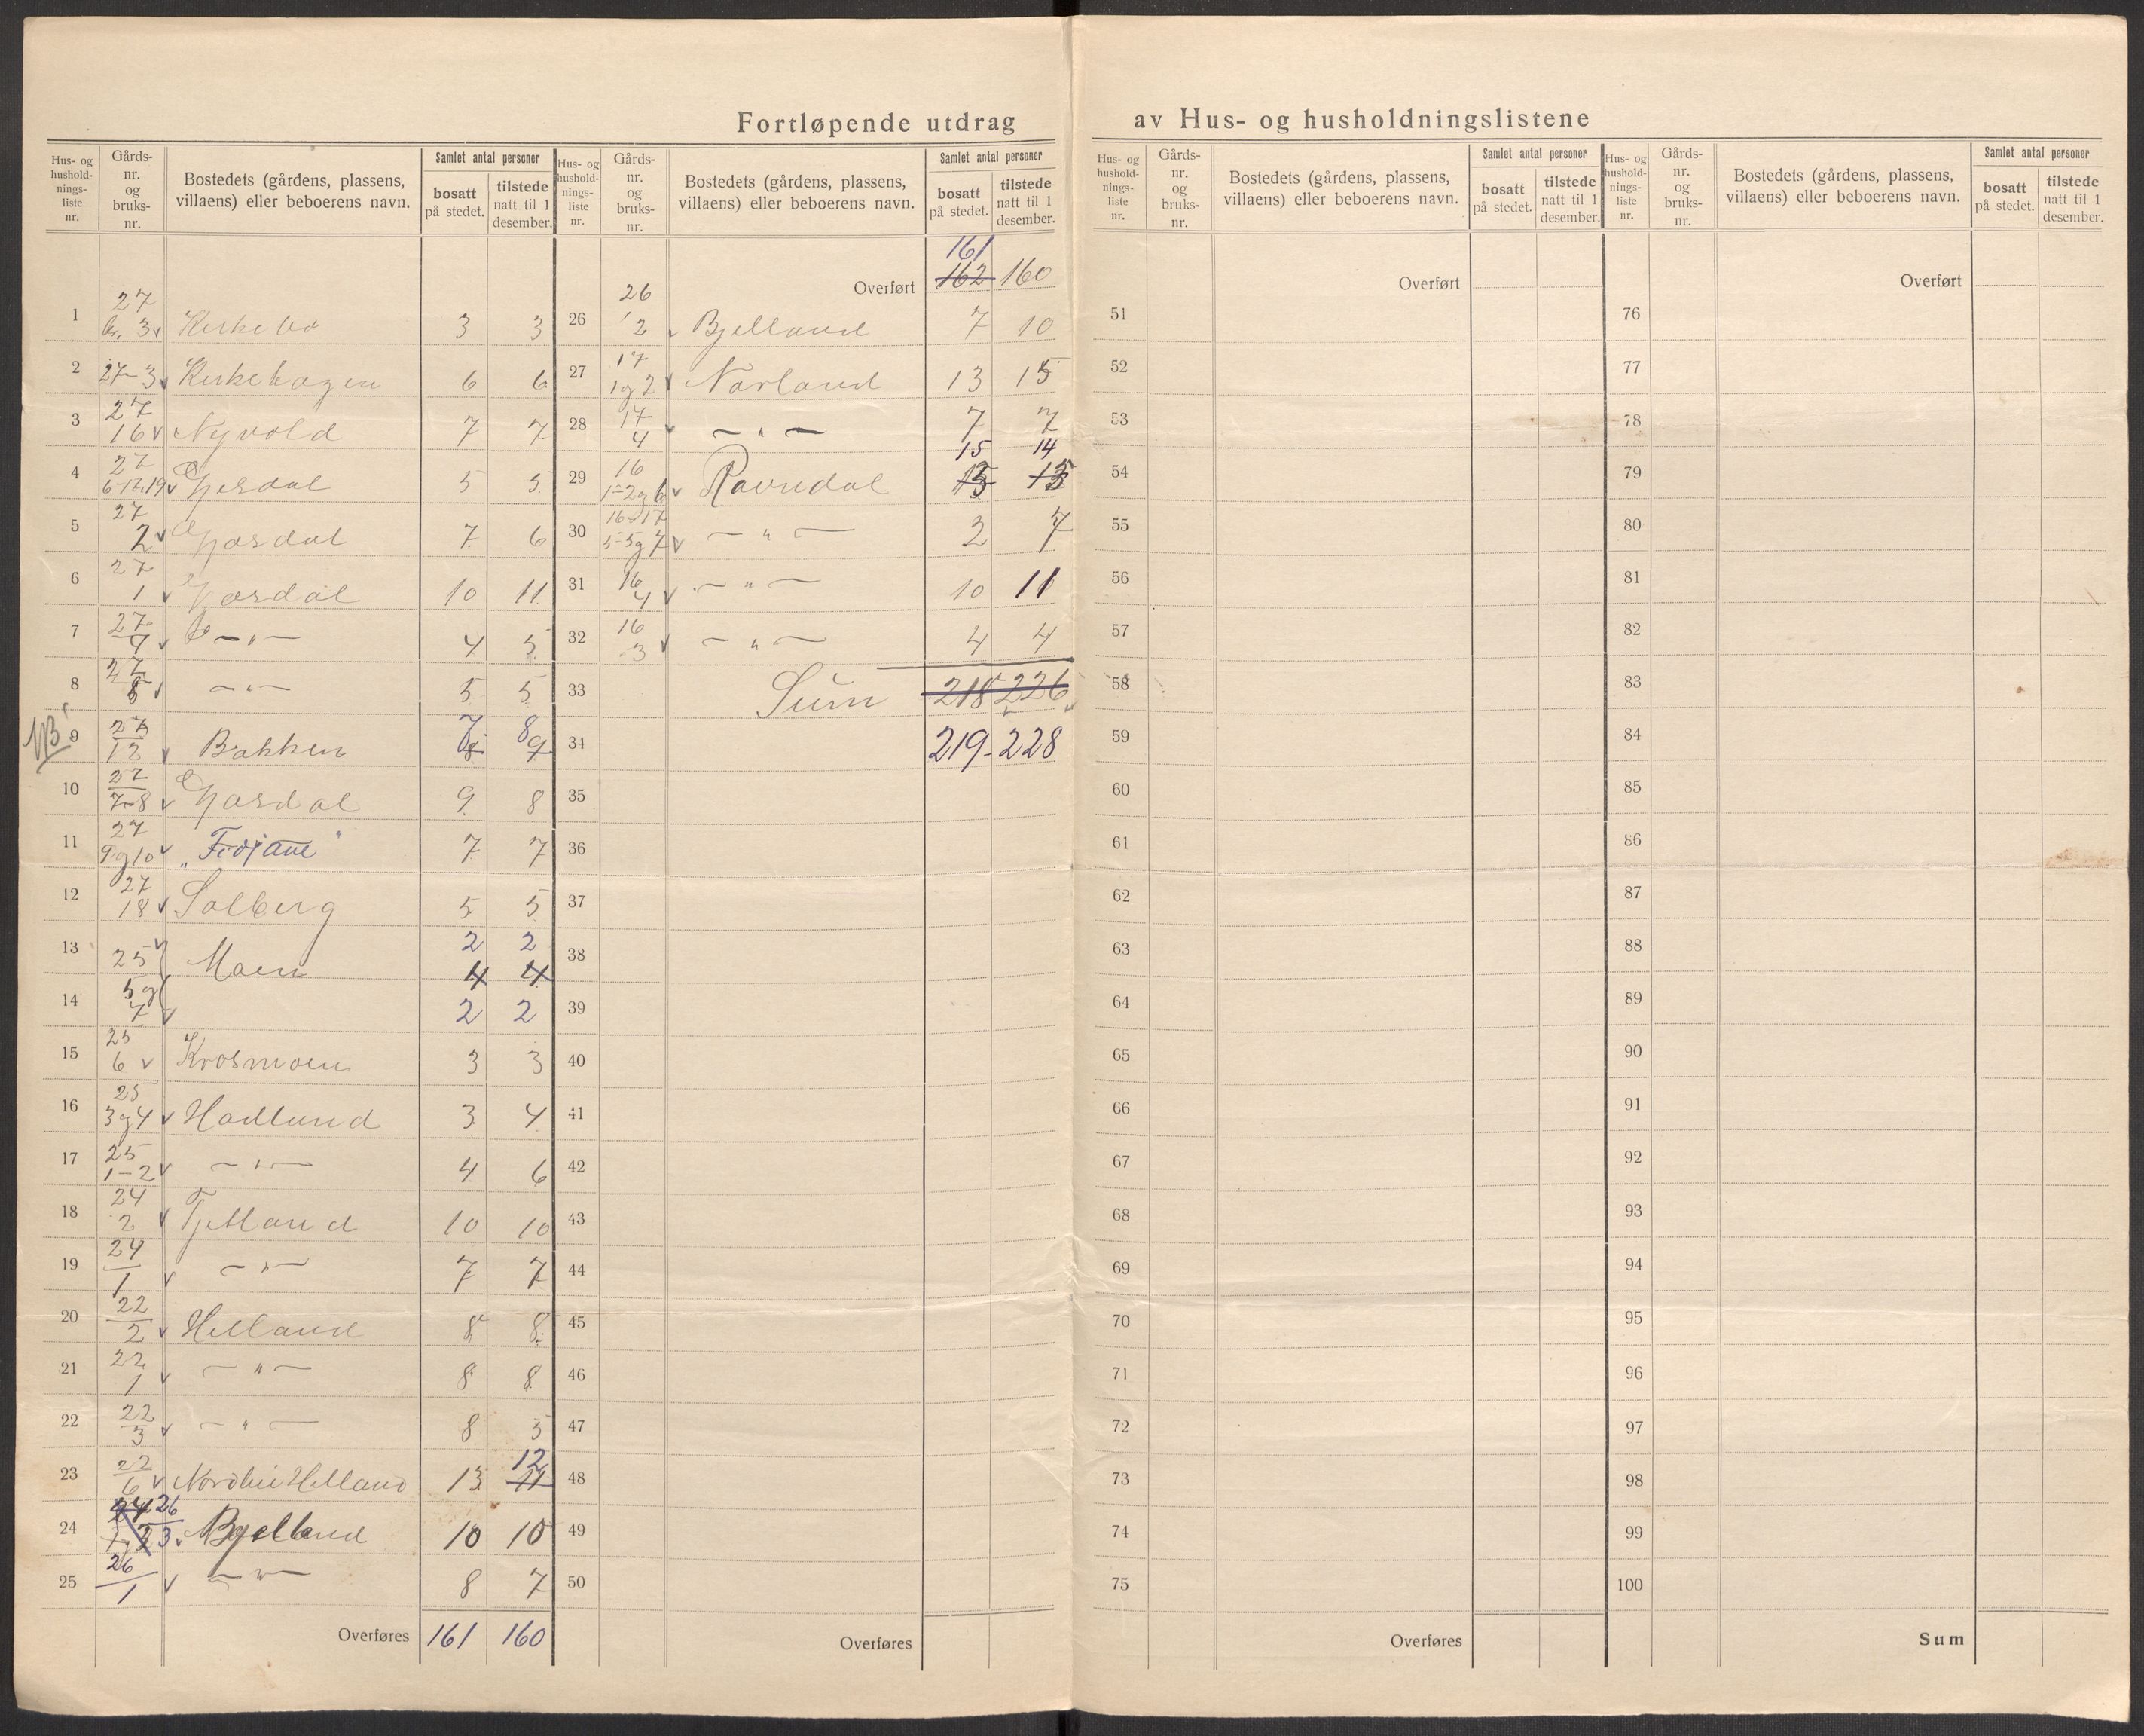 Fortløpende utdrag av Hus- og husholdningslistene
Hus- og hushold-nings-liste nr. Gårds-nr. og bruks-nr. Bostedets (gårdens, plassens, villaens) eller beboerens navn. Samlet antal personer bosatt på stedet. tilstede natt til 1 desember.
1 27 br. 3 v Kirkebø 3 3
2 27-3 v Kirkehagen 6 6
3 27 16 v Nyvold 7 7
4 27 6-17,19 v Gjesdal 5 5
5 27 2 v Gjæsdal 7 6
6 27 1 v Gjæsdal 10 11
7 27 4 v — " — 4 5
8 27 5 v — " — 5 5
NB 9 27 12 v Bakken 7 8 8 9
10 27 7-8 v Gjæsdal 9 8
11 27 9 og 10 v „Fidjane" 7 7
12 27 18 v Solberg 5 5
13 25 v Moen 2 2
4 4
14 5 og 7 v 2 2
15 25 6 v Krosmoen 3 3
16 25 3 og 4 v Hadland 3 4
17 25 1-2 v — " — 4 6
18 24 2 v Tjelland 10 10
19 24 1 v — " — 7 7
20 22 2 v Helland 8 8
21 22 1 v — " — 8 8
22 22 3 v — " — 8 5
23 22 6 v Nordlie Helland 13 12 11
24 24 26 3 v Bjelland 10 10
25 26 1 v — " — 8 7
Overføres 161 160
Hus- og hushold-nings-liste nr. Gårds-nr. og bruks-nr. Bostedets (gårdens, plassens, villaens) eller beboerens navn. Samlet antal personer bosatt på stedet. tilstede natt til 1 desember.
161
Overført 162 160
26 26 2 v Bjelland 7 10
27 17 1 og 2 v Norland 13 15
28 17 4 v — " — 7 7
15 14
29 16 1-2 og 6 v Ravndal 15 13
30 16-17 5-5 og 7 v — " — 2 7
31 16 4 v — " — 10 11
32 16 3 v — " — 4 4
33 Sum 218 226
34 219 - 228
35
36
37
38
39
40
41
42
43
44
45
46
47
48
49
50
Overføres
Hus- og hushold-nings-liste nr. Gårds-nr. og bruks-nr. Bostedets (gårdens, plassens, villaens) eller beboerens navn. Samlet antal personer bosatt på stedet. tilstede natt til 1 desember.
Overført
51
52
53
54
55
56
57
58
59
60
61
62
63
64
65
66
67
68
69
70
71
72
73
74
75
Overføres
Hus- og hushold-nings-liste nr. Gårds-nr. og bruks-nr. Bostedets (gårdens, plassens, villaens) eller beboerens navn. Samlet antal personer bosatt på stedet. tilstede natt til 1 desember.
Overført
76
77
78
79
80
81
82
83
84
85
86
87
88
89
90
91
92
93
94
95
96
97
98
99
100
Sum